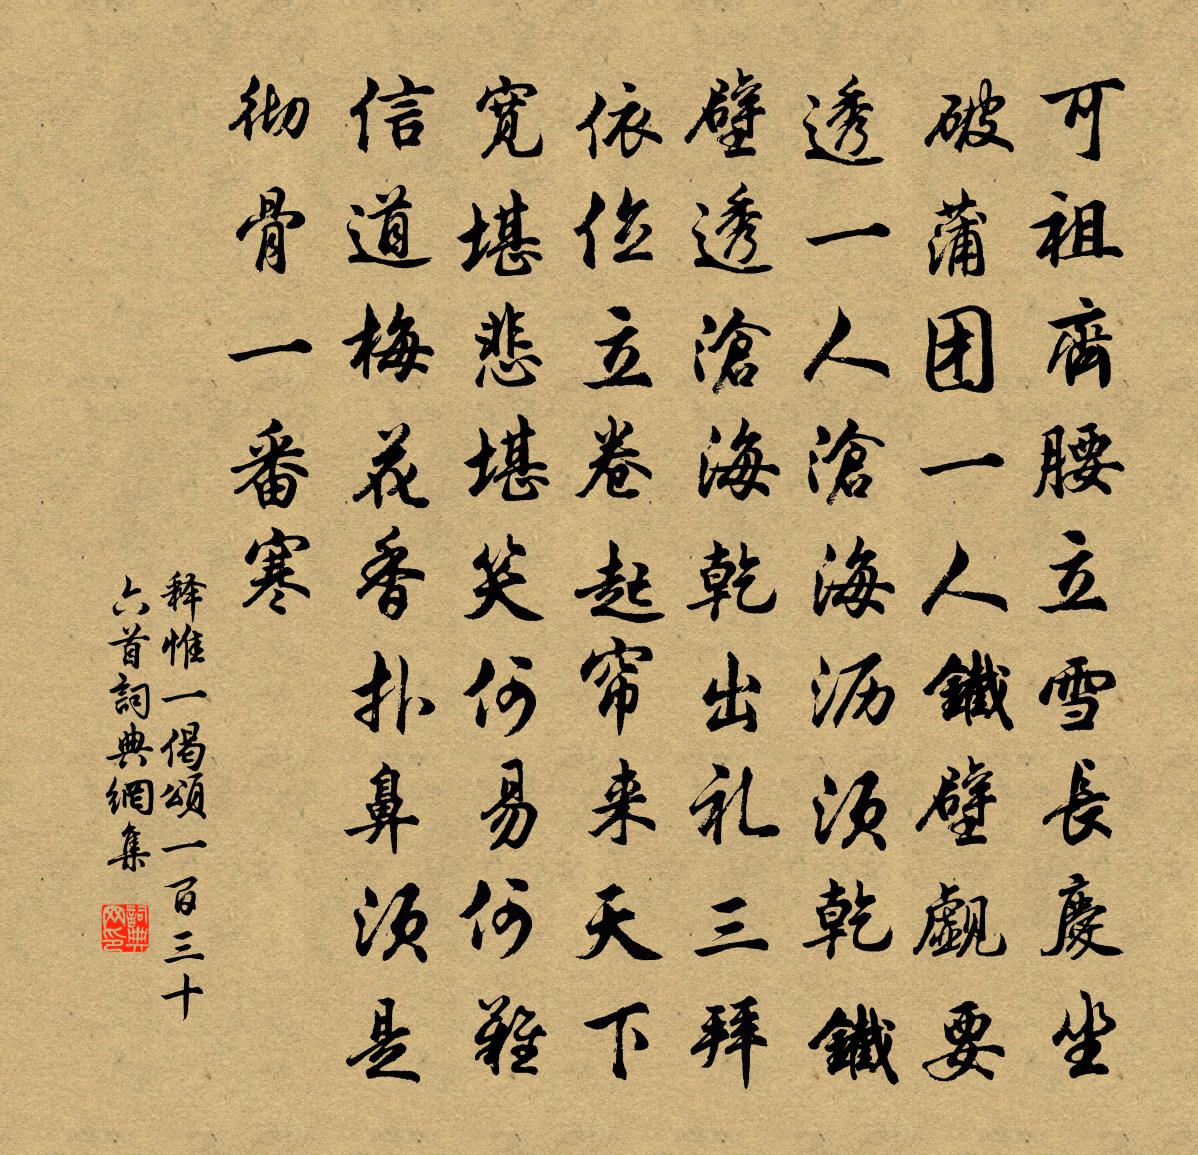 可祖齊腰立雪長慶坐
破蒲团一人鐵壁覷要
透一人滄海沥须乾鐵
壁透滄海乾出礼三拜
依位立卷起帘来天下
寛堪悲堪笑何易何難
信道梅花香扑鼻须是
彻骨一番寒
释惟一偈頌一百三十
六首詞典網集
詞典网印